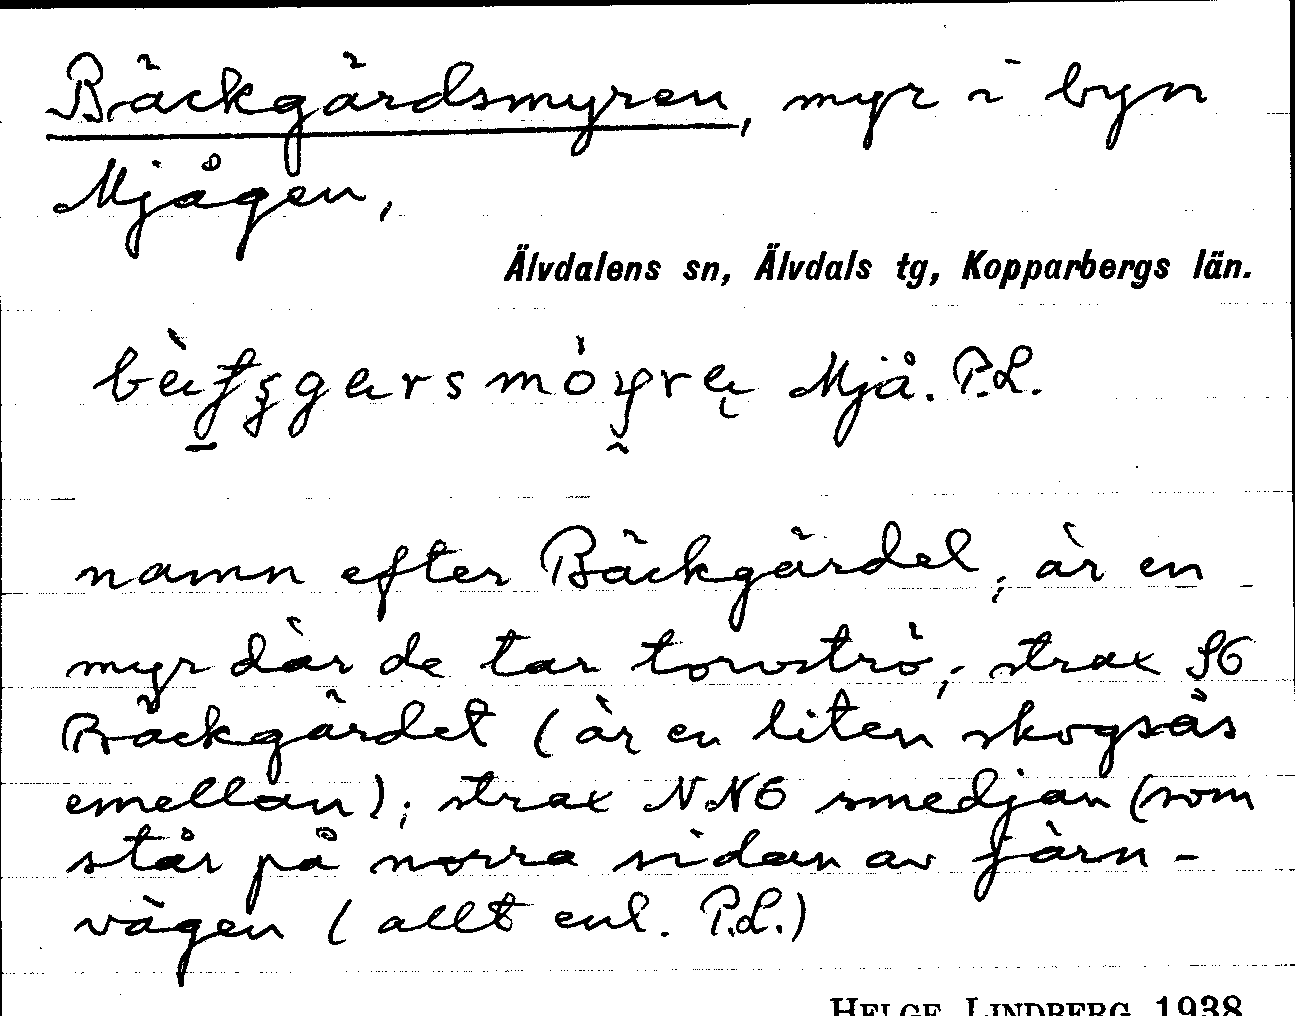 Bäckgärdsmyren, myr i byn
Mjågen,
Älvdalens sn, Älvdals tg, Kopparbergs län.
Mjå. P.L.
namn efter Bäckgärdet; är en
myr där de tar torvströ; strax SO
Bäckgärdet (är en liten skogsås
emellan); strax NNO smedjan (som
står på norra sidan av järn-
vägen (allt enl. P.L.)
HELGE LINDBERG 1938